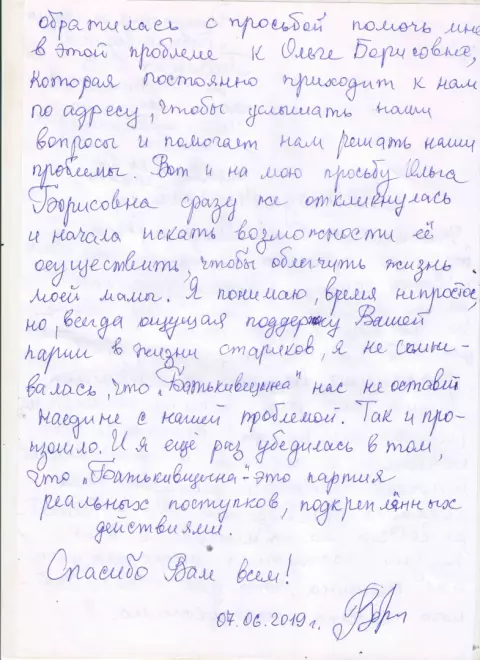 обратилась с просьбой помочь мне
в этой проблеме к Ольге Борисовне,
которая постоянно приходит к нам
по адресу, чтобы услышать наши
вопросы и помогает нам решать наши
проблемы. Вот и на мою просьбу Ольга
Борисовна сразу же откликнулась
и начала искать возможности её
осуществить, чтобы облегчить жизнь
моей мамы. Я понимаю, время непростое,
но, всегда ощущая поддержку Вашей
парии в жизни стариков, я не сомне-
валась, что "Батькивщына" нас не оставит
наедине с нашей проблемой. Так и про-
изошло. И я ещё раз убедилась в том,
что "Батькивщына" - это партия
реальных поступков, подкреплённых
действиями.
Спасибо Вам всем!
07.06.2019 г.